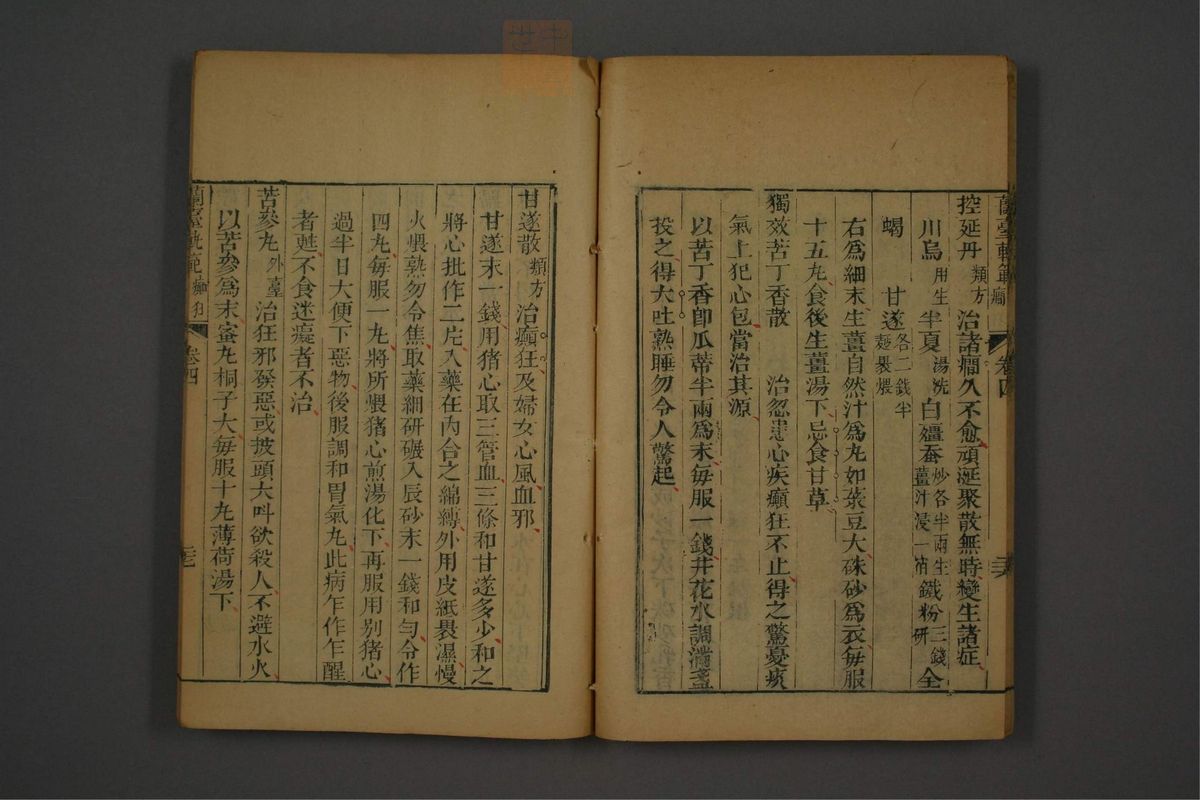 蘭臺軌範 癲
卷四
控延丹 類方 治諸癎久不愈頑涎聚散無時變生諸症
川烏 用生 半夏 湯洗 白殭蚕 炒各半兩生薑汁浸一宿 鐵粉 三錢研 全
蝎 甘遂 各二錢半麵裹煨
右爲細末生薑自然汁爲丸如菉豆大硃砂爲衣每服
十五丸食後生薑湯下忌食甘草
獨效苦丁香散 治忽患心疾癲狂不止得之驚憂痰
氣上犯心包當治其源
以苦丁香卽瓜蒂半兩爲末每服一錢井花水調滿盞
投之得大吐熟睡勿令人驚起
甘遂散 類方 治癲狂及婦女心風血邪
甘遂末一錢用猪心取三管血三條和甘遂多少和之
將心批作二片入藥在內合之綿縛外用皮紙裹濕慢
火煨熟勿令焦取藥細研碾入辰砂末一錢和勻令作
四丸每服一丸將所煨猪心煎湯化下再服用別猪心
過半日大便下惡物後服調和胃氣丸此病乍作乍醒
者甦不食迷癡者不治
苦參丸 外臺 治狂邪發惡或披頭大叫欲殺人不避水火
以苦參爲末蜜丸桐子大每服十丸薄荷湯下
蘭臺軌範 癲狂
卷四